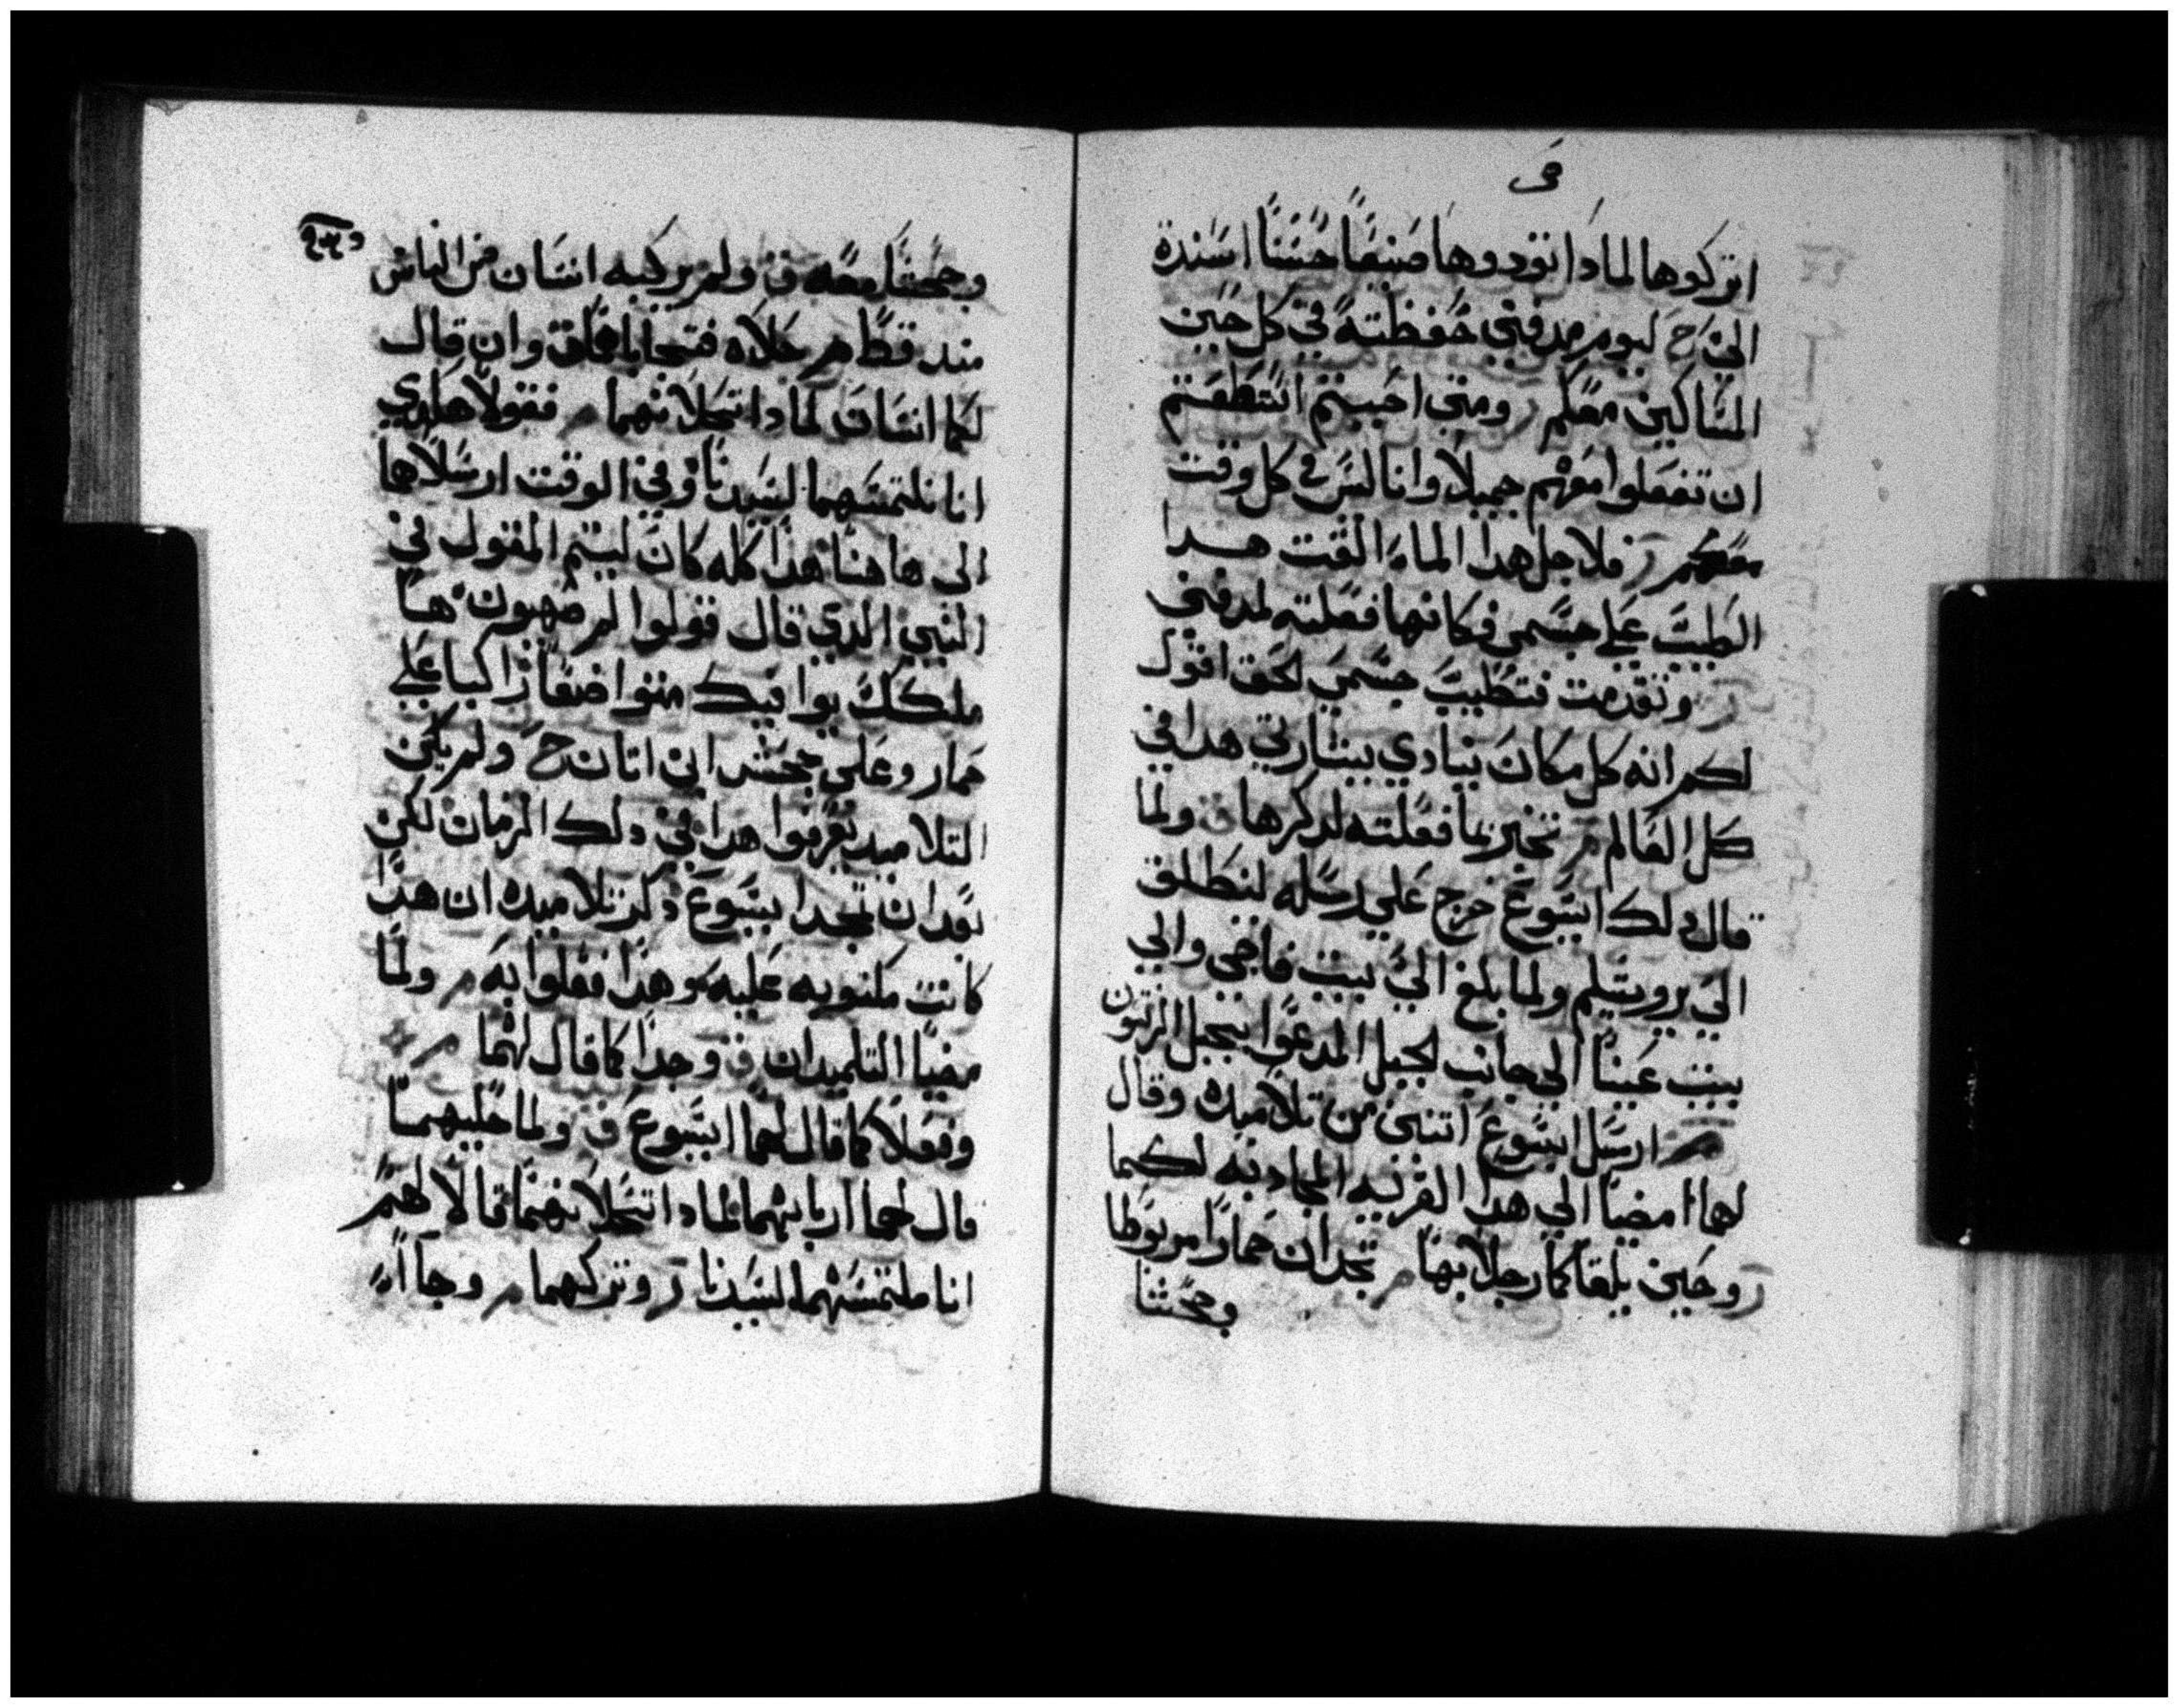 في
اتركوها لمادا تودوها صنيعًا حسنًا اسندة
الي ح ليوم مدفني حفظته في كل حين
المساكين معكم ر ومتي احببتم استطعتم
ان تفعلوا معهم جميلا وانا لس في كل وقت
معكم ر فلاجل هدا الماء القت هدا
الطيب علي جسمي فكانها فعلته لمدفني
ر وتقدمت فتطيب جسمي لحق اقول
لكم انه كل مكان ينادي ببشارتي هدا في
كل العالم مر تخبر بما فعلته لدكرها ف ولما
قال دلك ايسوع خرج علي رسله لينطلق
الي يروشيلم ولما بلغ الي بيت فاجي والي
بيت عينا الي جانب لجبل المدعوا بجبل الزيتون
مر ارسل ايسوع اتنين من تلاميده وقال
لهما امضيا الي هدا القريه المحاديه لكيما
ر وحين يلقاكما رجلا بها مر تجدان حمارا مربوطا
وجحشا
وجحشا معه ف ولم يركبه انسان من الناس
مند قط مر حلاه فتجيا بالحاق وان قال
لكما انسان لمادا تحلانهما مر فقولا هاوي
انا نلتمسهما لسيدنا وفي الوقت ارسلاهما
الى هاهنا هدا كله كان ليتم المقول في
النبي الدي قال قولوا لبر صهيون ها
ملكك يوافيك متواضعا راكبا علي
حمار وعلى جحش ابن اتان ح ولم يكن
التلاميد يعرفوا هدا في دلك الزمان لكن
بعد ان تمجد ايسوع دكر تلاميده ان هدا
كانت مكتوبه عليه وهدا فعلوا به مر ولما
مضيا التلميدان ف وجدا كما قال لهما مر
وفعلا كما قال لهما ايسوع ف ولما حليهما
قال لهما اربابهما لمادا تحلانهما قالا لهم
انا ملتمسهما لسيدنا ر وتركهما مر وجاا